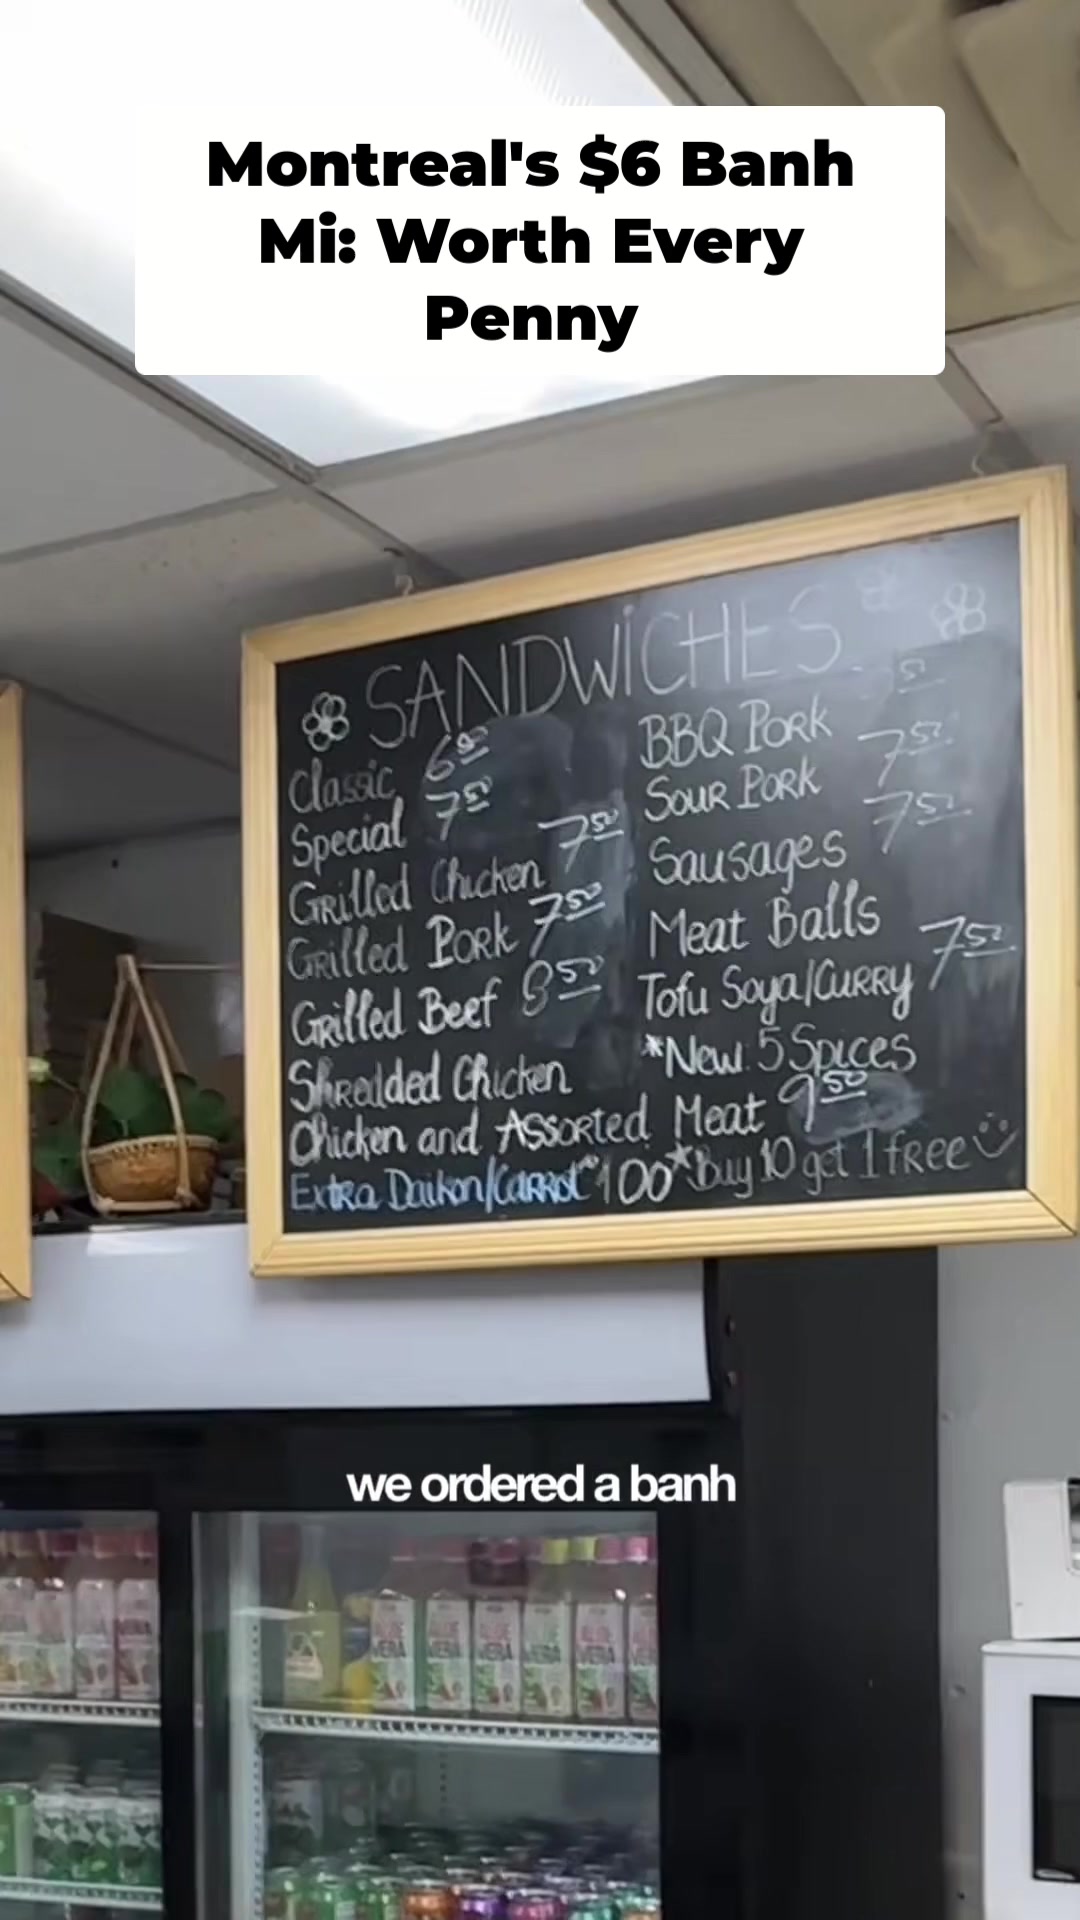 Montreal's $6 Banh
Mi: Worth Every
Penny
SANDWICHES
Classic 6 00
Special 7 50
Grilled Chicken 7 50
Grilled Pork 7 50
Grilled Beef 8 50
Shredded Chicken
Chicken and Assorted Meat 9 50
Extra Daikon/Carrot 1 00
BBQ Pork
Sour Pork 7 50
Sausages 7 50
Meat Balls
Tofu Soya/Curry 7 50
*New 5 Spices
*Buy 10 get 1 free
we ordered a banh
ALOE
VERA